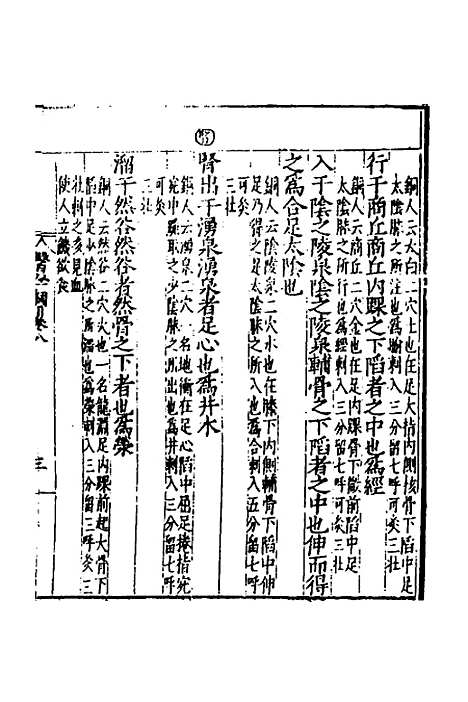 銅人云太白二穴土也在足大指内側核骨下陷中足
太陰脉之所注也爲腧刺入三分留七呼可灸三壯
行于商丘商丘内踝之下陷者之中也爲經
銅人云商丘二穴金也在足内踝骨下微前陷中足
太陰脉之所行也爲經刺入三分留七呼可灸三壯
入于陰之陵泉陰之陵泉輔骨之下陷者之中也伸而得
之爲合足太陰也
銅人云陰陵泉二穴水也在膝下内側輔骨下陷中伸
足乃得之足太陰脉之所入也爲合刺入五分留七呼
可灸三壯
腎
腎出于湧泉湧泉者足心也爲井木
銅人云湧泉二穴一名地衝在足心陷中屈足捲指宛
宛中足少陰脉之所出也爲井刺入三分留七呼
可灸三壯
溜于然谷然谷者然骨之下者也爲滎
銅人云然谷二穴火也一名龍淵足内踝前起大骨下
陷中足少陰脉之所溜也爲滎刺入三分留三呼灸三
壯刺之多見血
使人立饑欲食
卷八
三